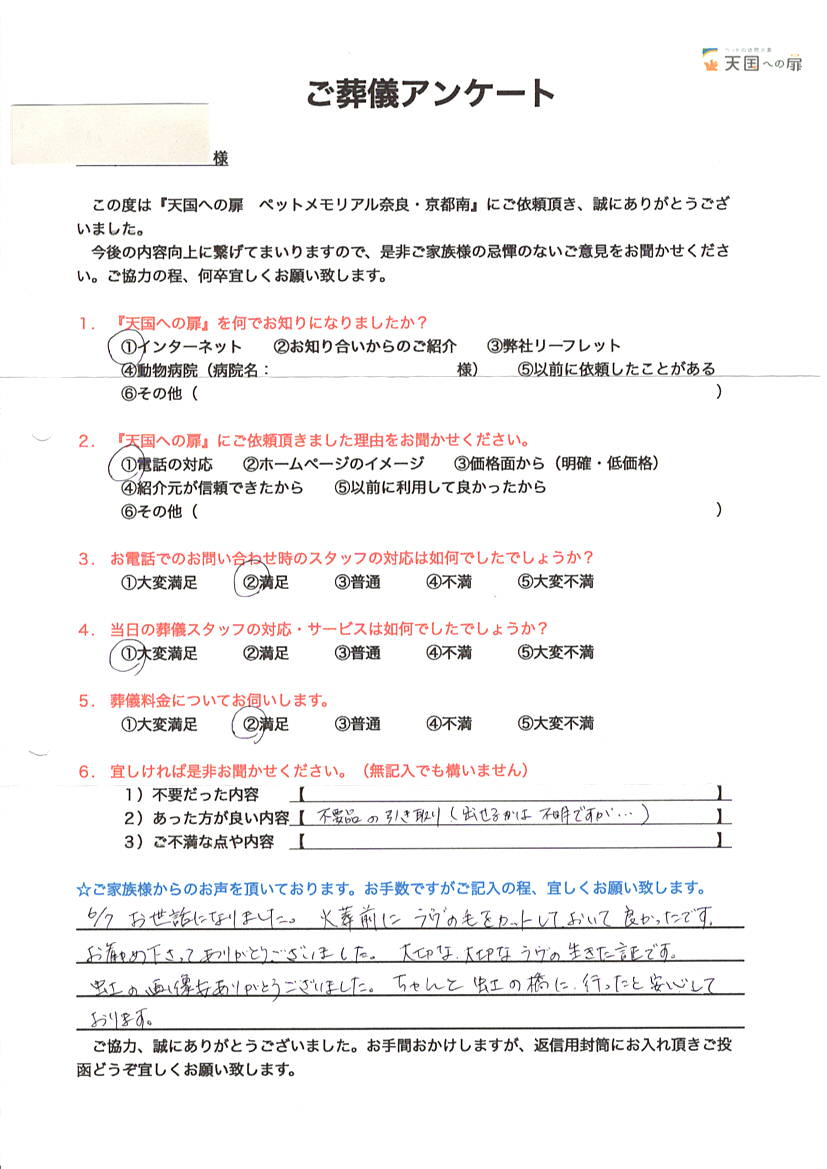 ペットの訪問火葬
天国への扉
ご葬儀アンケート
様
この度は『天国への扉　ペットメモリアル奈良・京都南』にご依頼頂き、誠にありがとうござ
いました。
今後の内容向上に繋げてまいりますので、是非ご家族様の忌憚のないご意見をお聞かせくださ
い。ご協力の程、何卒宜しくお願い致します。
１．『天国への扉』を何でお知りになりましたか？
①インターネット　②お知り合いからのご紹介　③弊社リーフレット
④動物病院（病院名：　様）　⑤以前に依頼したことがある
⑥その他（　）
２．『天国への扉』にご依頼頂きました理由をお聞かせください。
①電話の対応　②ホームページのイメージ　③価格面から（明確・低価格）
④紹介元が信頼できたから　⑤以前に利用して良かったから
⑥その他（　）
３．お電話でのお問い合わせ時のスタッフの対応は如何でしたでしょうか？
①大変満足　②満足　③普通　④不満　⑤大変不満
４．当日の葬儀スタッフの対応・サービスは如何でしたでしょうか？
①大変満足　②満足　③普通　④不満　⑤大変不満
５．葬儀料金についてお伺いします。
①大変満足　②満足　③普通　④不満　⑤大変不満
６．宜しければ是非お聞かせください。（無記入でも構いません）
１）不要だった内容　【　】
２）あった方が良い内容【 不要品の引き取り（出せるかは不明ですが…）】
３）ご不満な点や内容　【　】
☆ご家族様からのお声を頂いております。お手数ですがご記入の程、宜しくお願い致します。
6/7 お世話になりました。火葬前にラヴの毛をカットしておいて良かったです。
お勧め下さってありがとうございました。大切な、大切なラヴの生きた証です。
虹の画像もありがとうございました。ちゃんと虹の橋に、行ったと安心して
おります。
ご協力、誠にありがとうございました。お手間おかけしますが、返信用封筒にお入れ頂きご投
函どうぞ宜しくお願い致します。